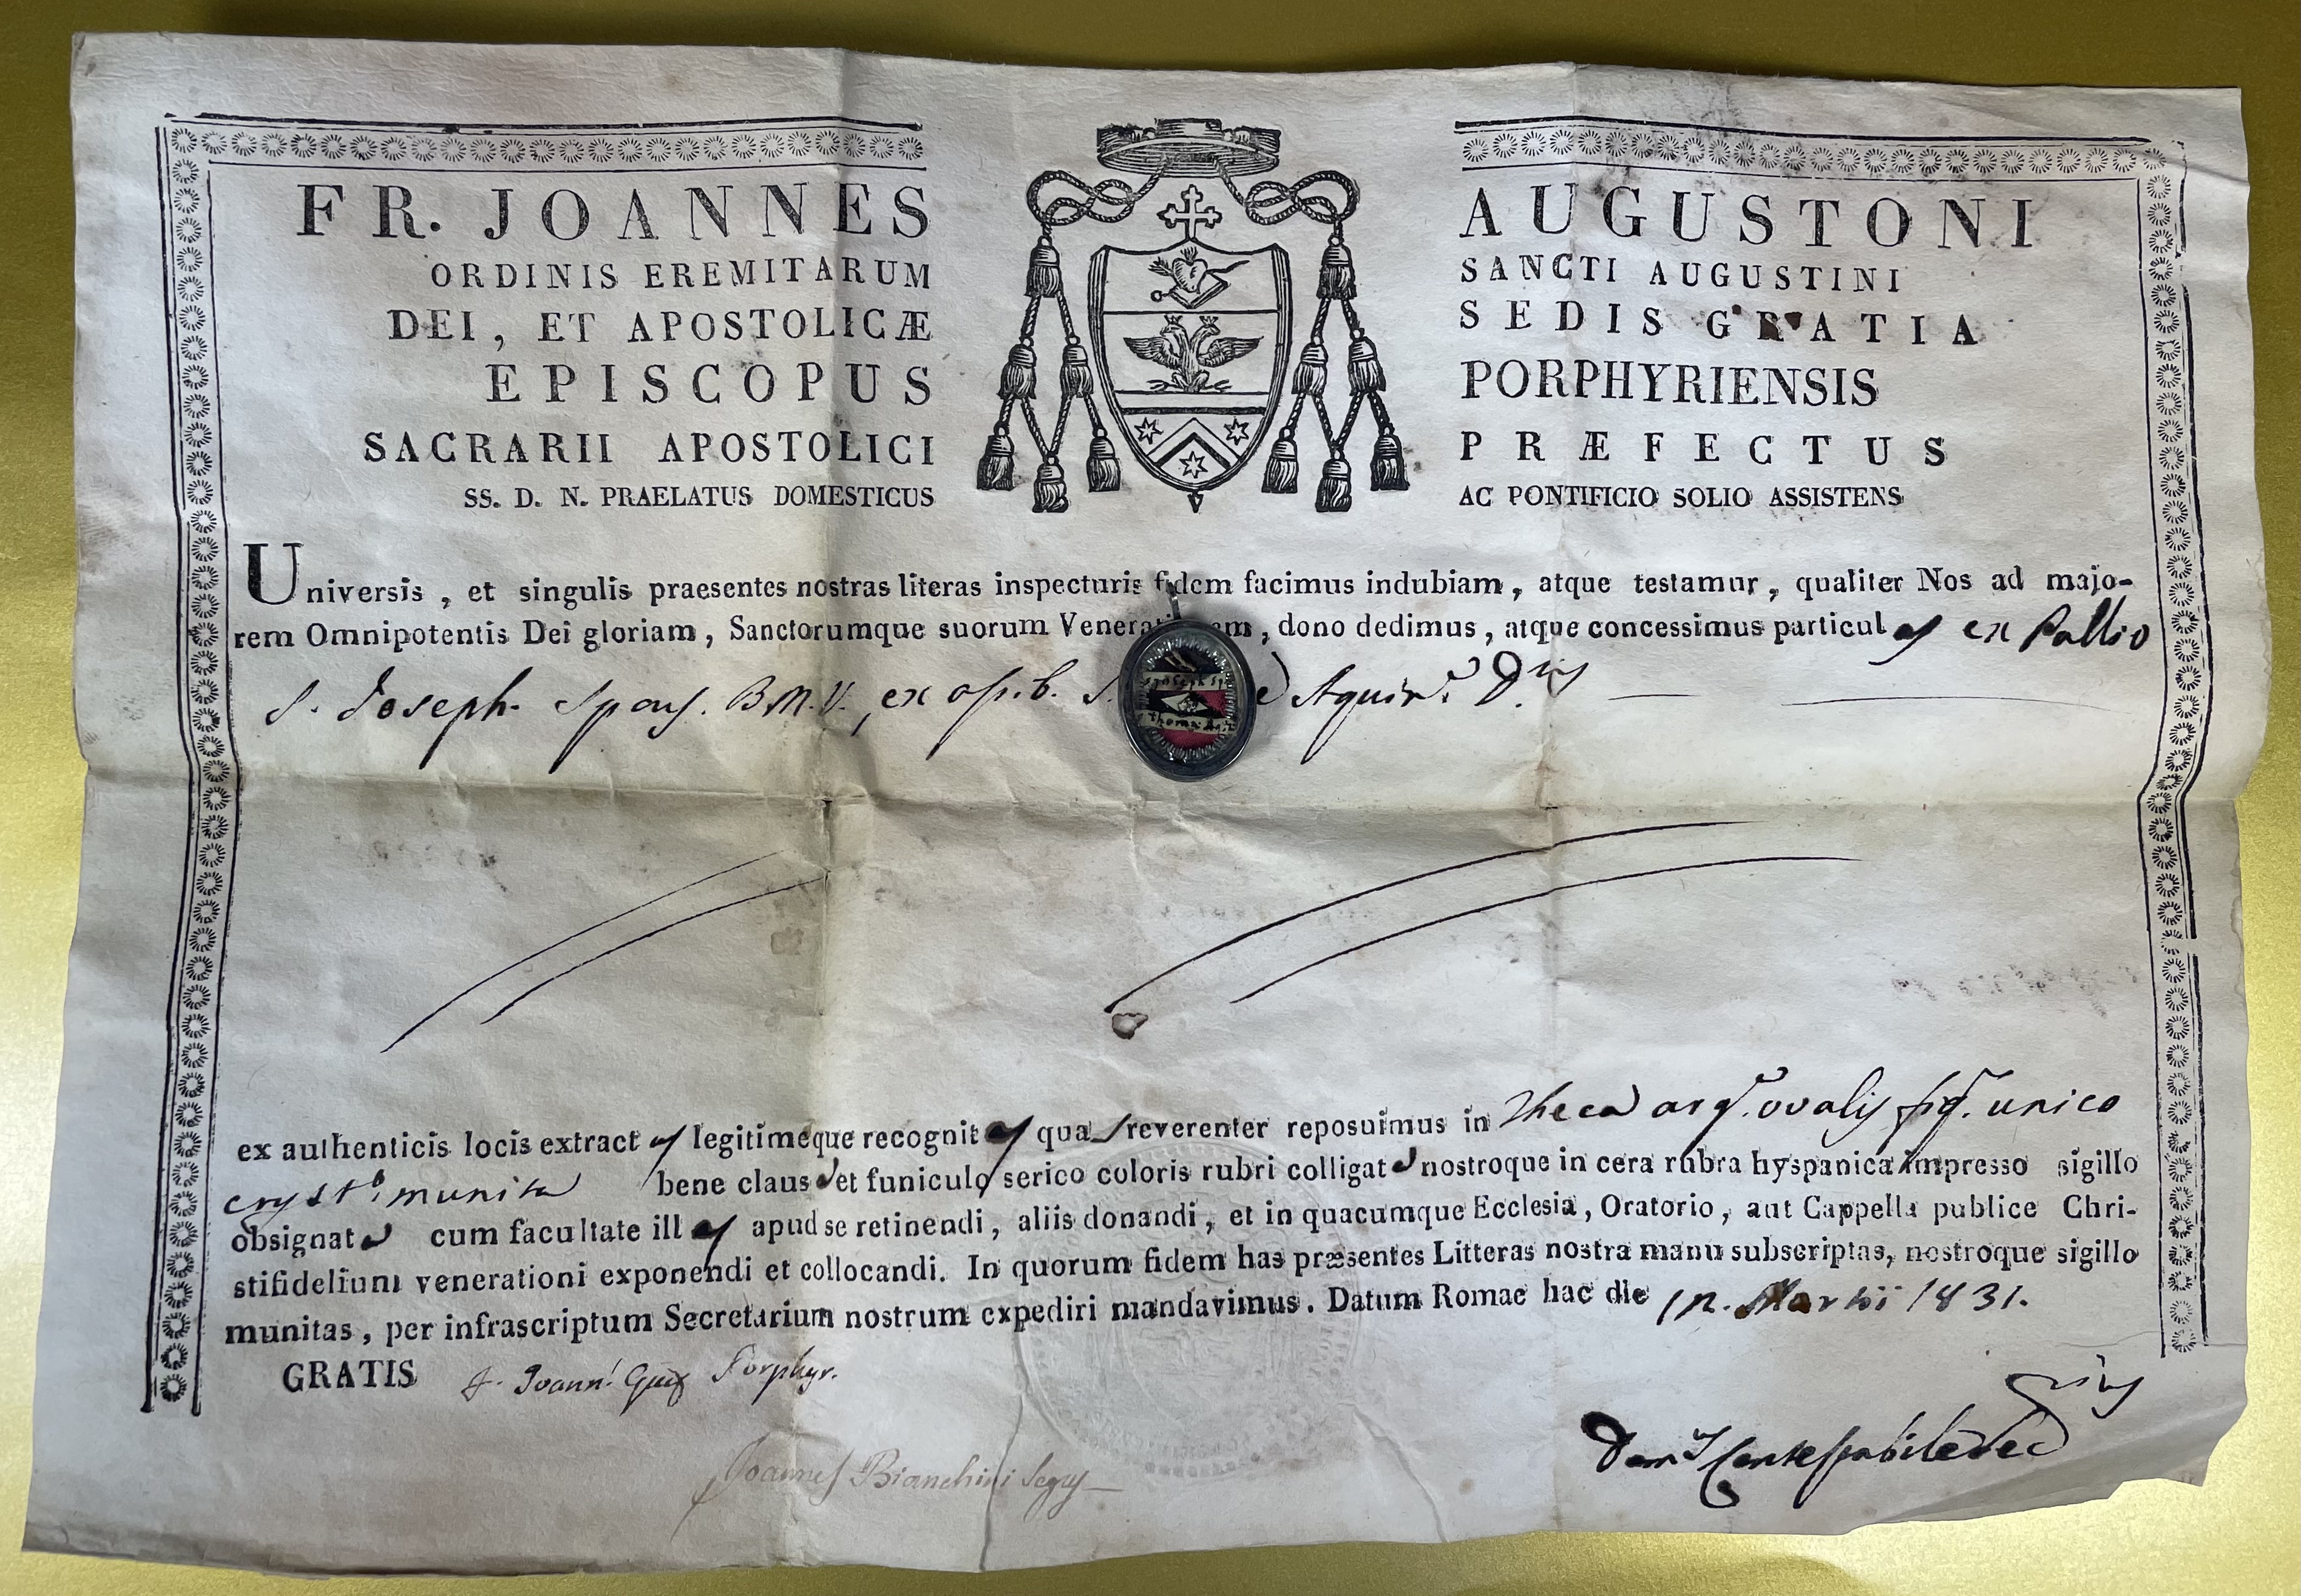 FR. JOANNES AUGUSTONI
ORDINIS EREMITARUM SANCTI AUGUSTINI
DEI, ET APOSTOLICÆ SEDIS GRATIA
EPISCOPUS PORPHYRIENSIS
SACRARII APOSTOLICI PRÆFECTUS
SS. D. N. PRAELATUS DOMESTICUS AC PONTIFICIO SOLIO ASSISTENS
Universis, et singulis praesentes nostras literas inspecturis fidem facimus indubiam, atque testamur, qualiter Nos ad majo-
rem Omnipotentis Dei gloriam, Sanctorumque suorum Venerati em, dono dedimus, atque concessimus particulas ex Pallio
S. Joseph Spons. B.M.V., ex ossib. S. Aquin. D.ris
S. Joseph Sp.
Thoma Aq.
ex authenticis locis extractas legitimeque recognitas quas reverenter reposuimus in theca arg. ovalis fig. unico
cryst. munita bene clausa et funiculo serico coloris rubri colligata nostroque in cera rubra hyspanica impresso sigillo
obsignata cum facultate illas apud se retinendi, aliis donandi, et in quacumque Ecclesia, Oratorio, aut Cappella publice Chri-
stifidelium venerationi exponendi et collocandi. In quorum fidem has præsentes Litteras nostra manu subscriptas, nostroque sigillo
munitas, per infrascriptum Secretarium nostrum expediri mandavimus. Datum Romae hac die Martii 1831.
GRATIS F. Joann. Porphyr.
Joannes Bianchini